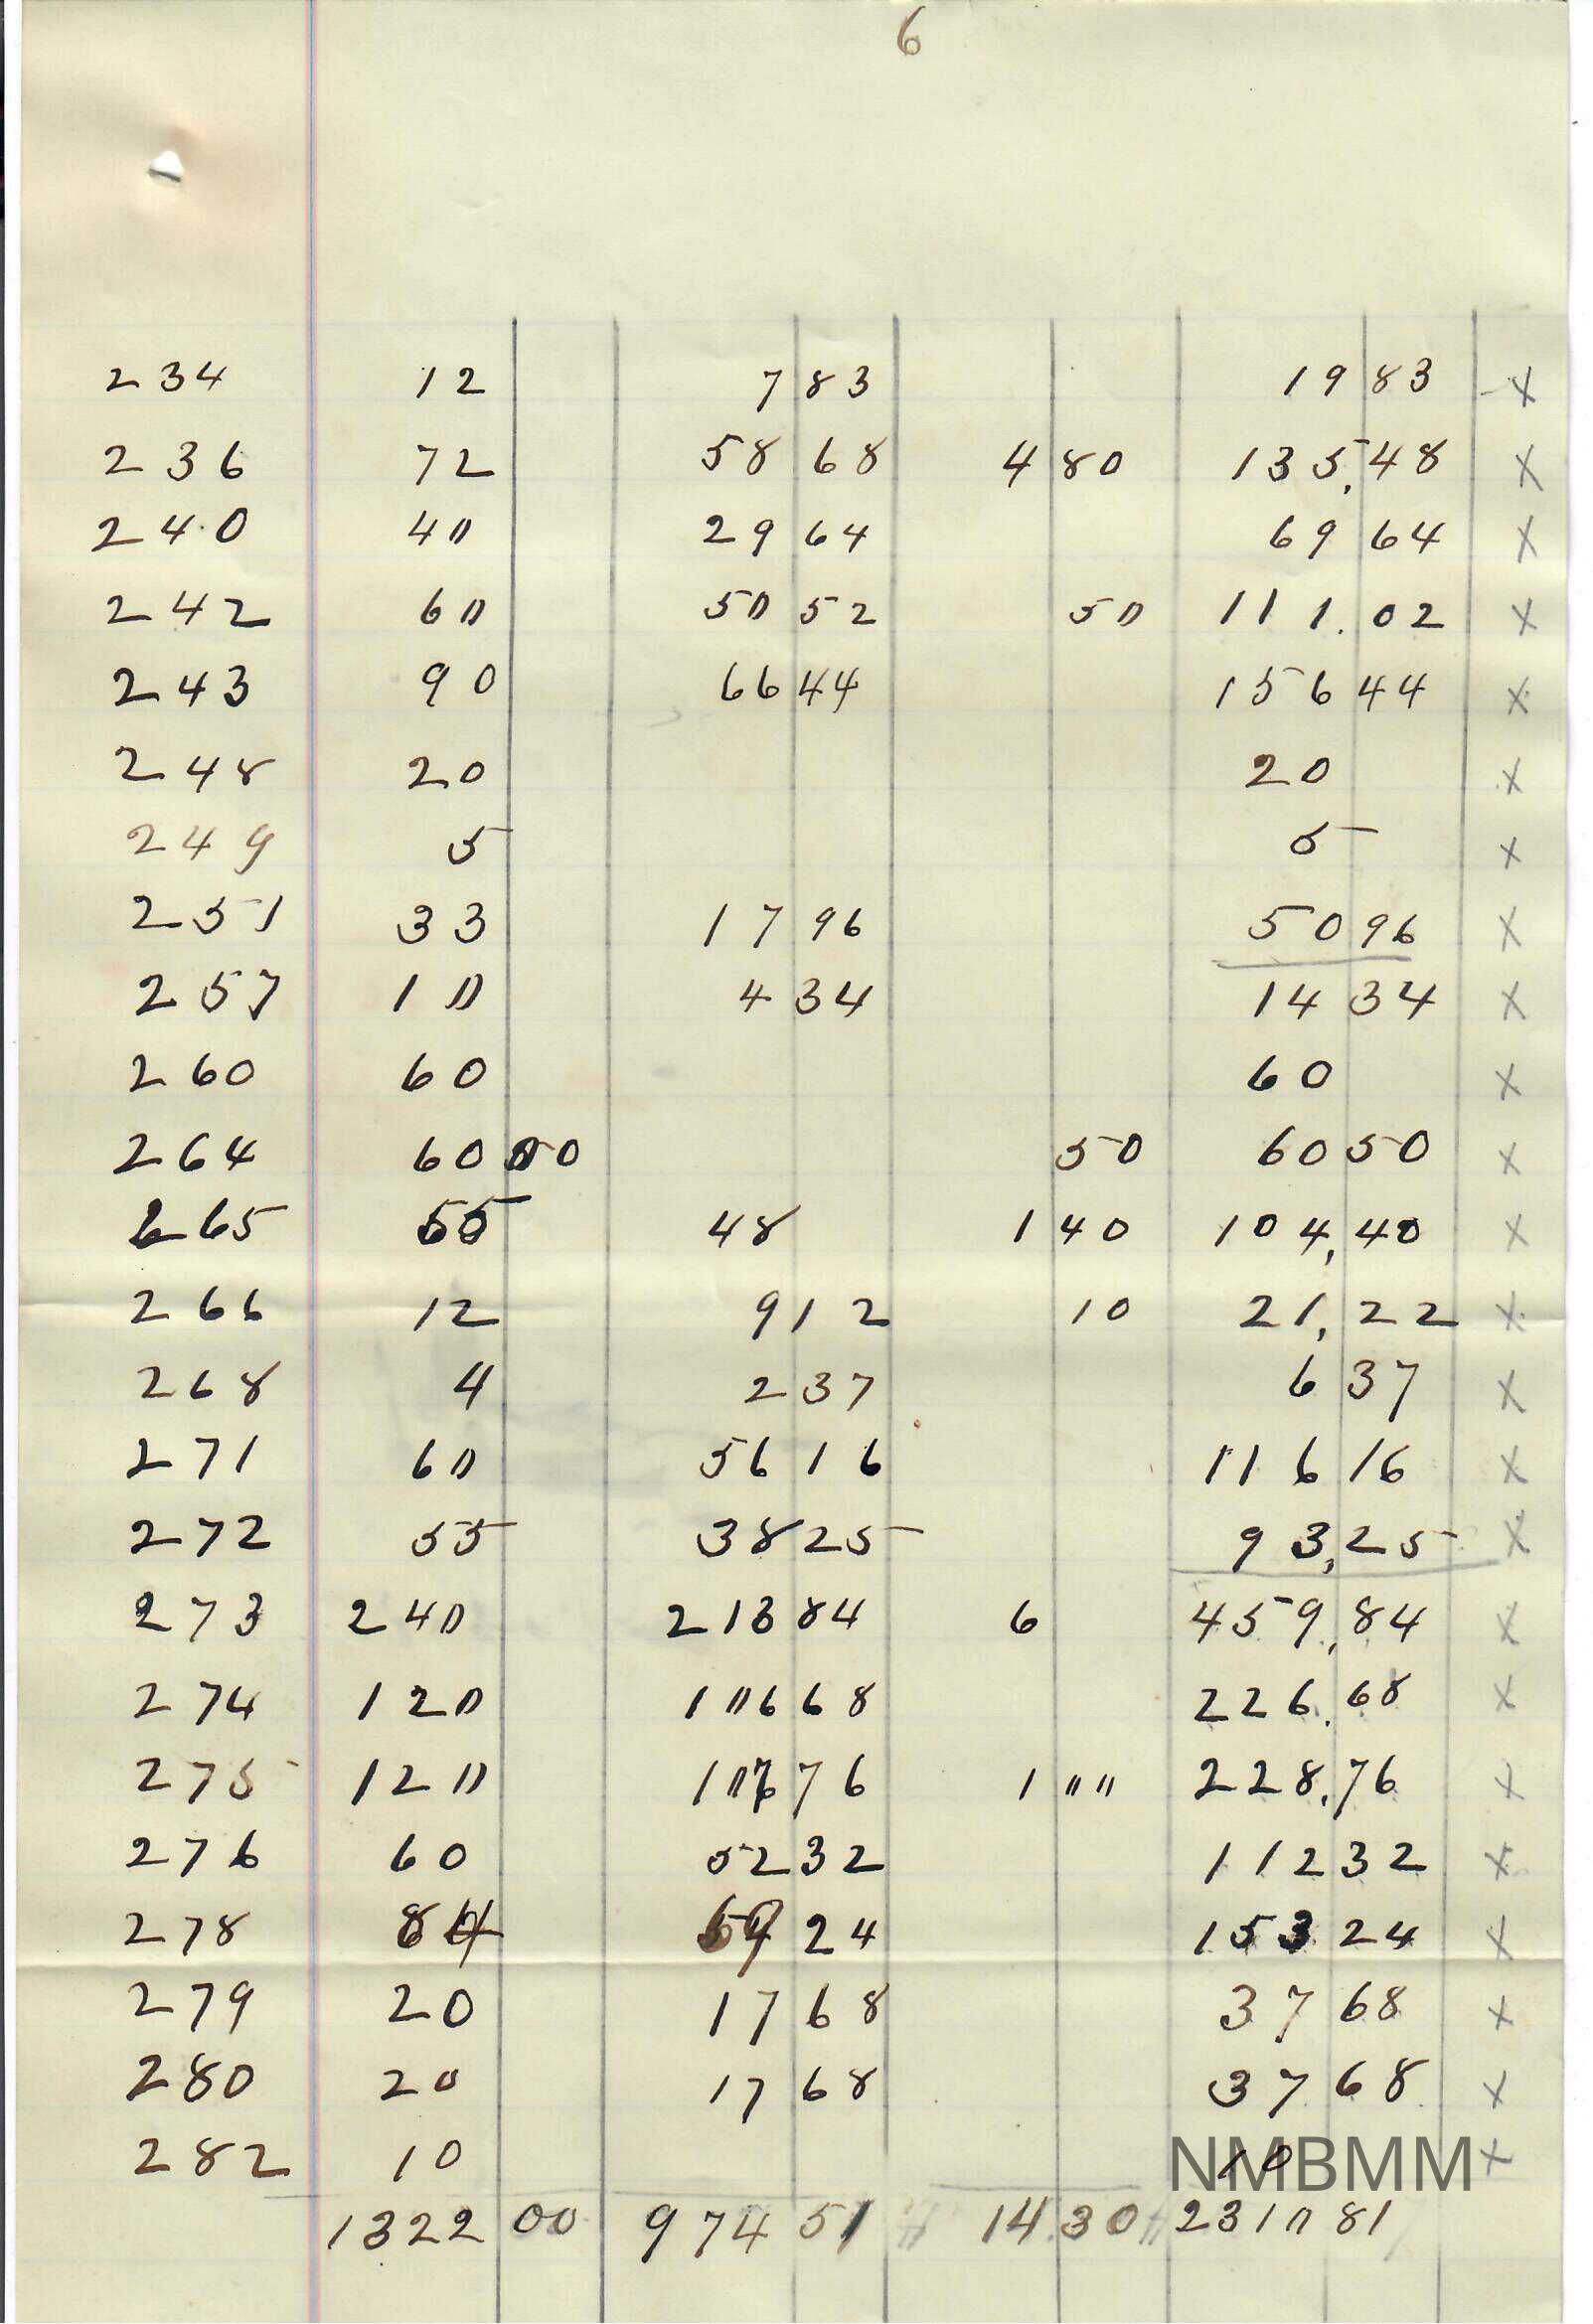 6
234 12 7 83 19 83 X
236 72 58 68 4 80 135,48 X
240 40 29 64 69 64 X
242 60 50 52 50 111.02 X
243 90 66 44 156 44 X
248 20 20 X
249 5 5 X
251 33 17 96 50 96 X
257 10 4 34 14 34 X
260 60 60 X
264 60 00 50 60 50 X
265 55 48 1 40 104,40 X
266 12 9 12 10 21,22 X
268 4 2 37 6 37 X
271 60 56 16 116 16 X
272 55 38 25 93,25 X
273 240 213 84 6 459,84 X
274 120 106 68 226.68 X
275 120 107 76 1 00 228,76 X
276 60 52 32 112 32 X
278 84 69 24 153 24 X
279 20 17 68 37 68 X
280 20 17 68 37 68 X
282 10 10 X
NMBMM
1322 00 974 51 14 30 2310 81